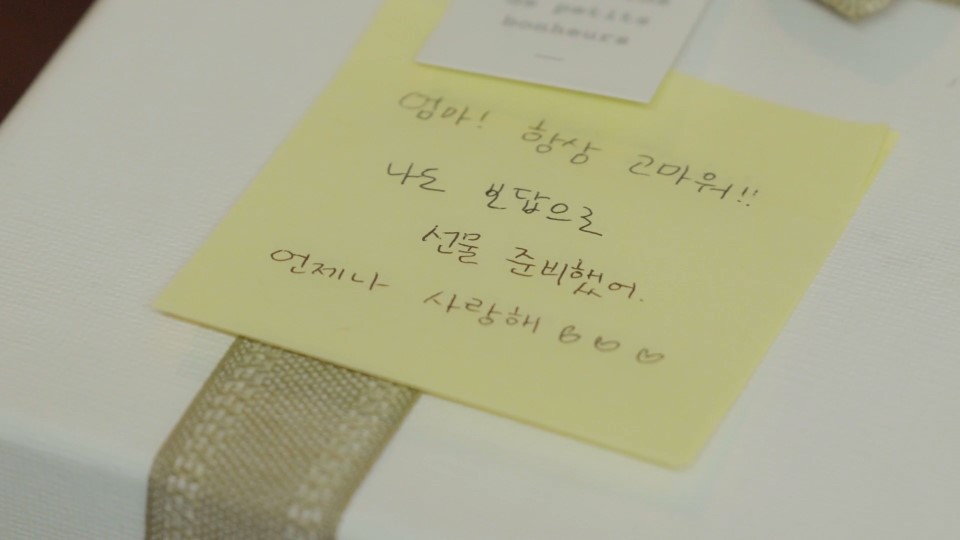 de petits
bonheurs
엄마! 항상 고마워!!
나도 보답으로
선물 준비했어.
언제나 사랑해 ♡♡♡